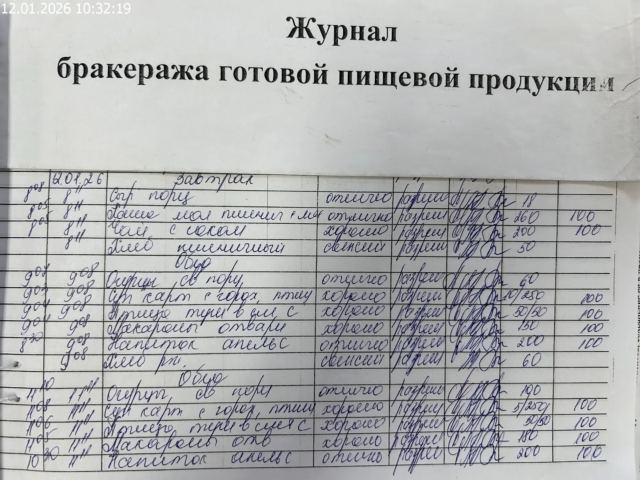 12.01.2026 10:32:19
Журнал
бракеража готовой пищевой продукции
Завтрак
8⁰⁸ 8¹¹ Сыр порц отлично разреш 18
8⁰⁵ 8¹¹ Каша мол пшенич + отлично разреш 260 100
8⁰⁵ 8¹¹ Чай с сахом хорошо разреш 200 100
8¹¹ Хлеб пшеничный свежий разреш 50
Обед
9⁰⁸ 9⁰⁸ Огурцы св порц отлично разреш 60
9⁰⁸ Суп карт с горох, птиц хорошо разреш 10/250 200
9⁰⁴ 9⁰⁸ Птица туш в см с хорошо разреш 50/50 100
9⁰⁴ 9⁰⁸ Макароны отварн хорошо разреш 150 100
8⁵⁰ 9⁰⁸ Напиток апельс отлично разреш 200 100
9⁰⁸ Хлеб рж. свежий разреш 60
Обед
11¹⁰ Огурцы св порц отлично разреш 100
11⁰⁸ 11¹¹ Суп карт с горох, птицы хорошо разреш 100
11⁰⁶ 11¹¹ Птица туш в см с хорошо разреш 50/50 100
11⁰⁵ 11¹¹ Макароны отв хорошо разреш 180 100
10³⁰ 11¹¹ Напиток апельс отлично разреш 200 100